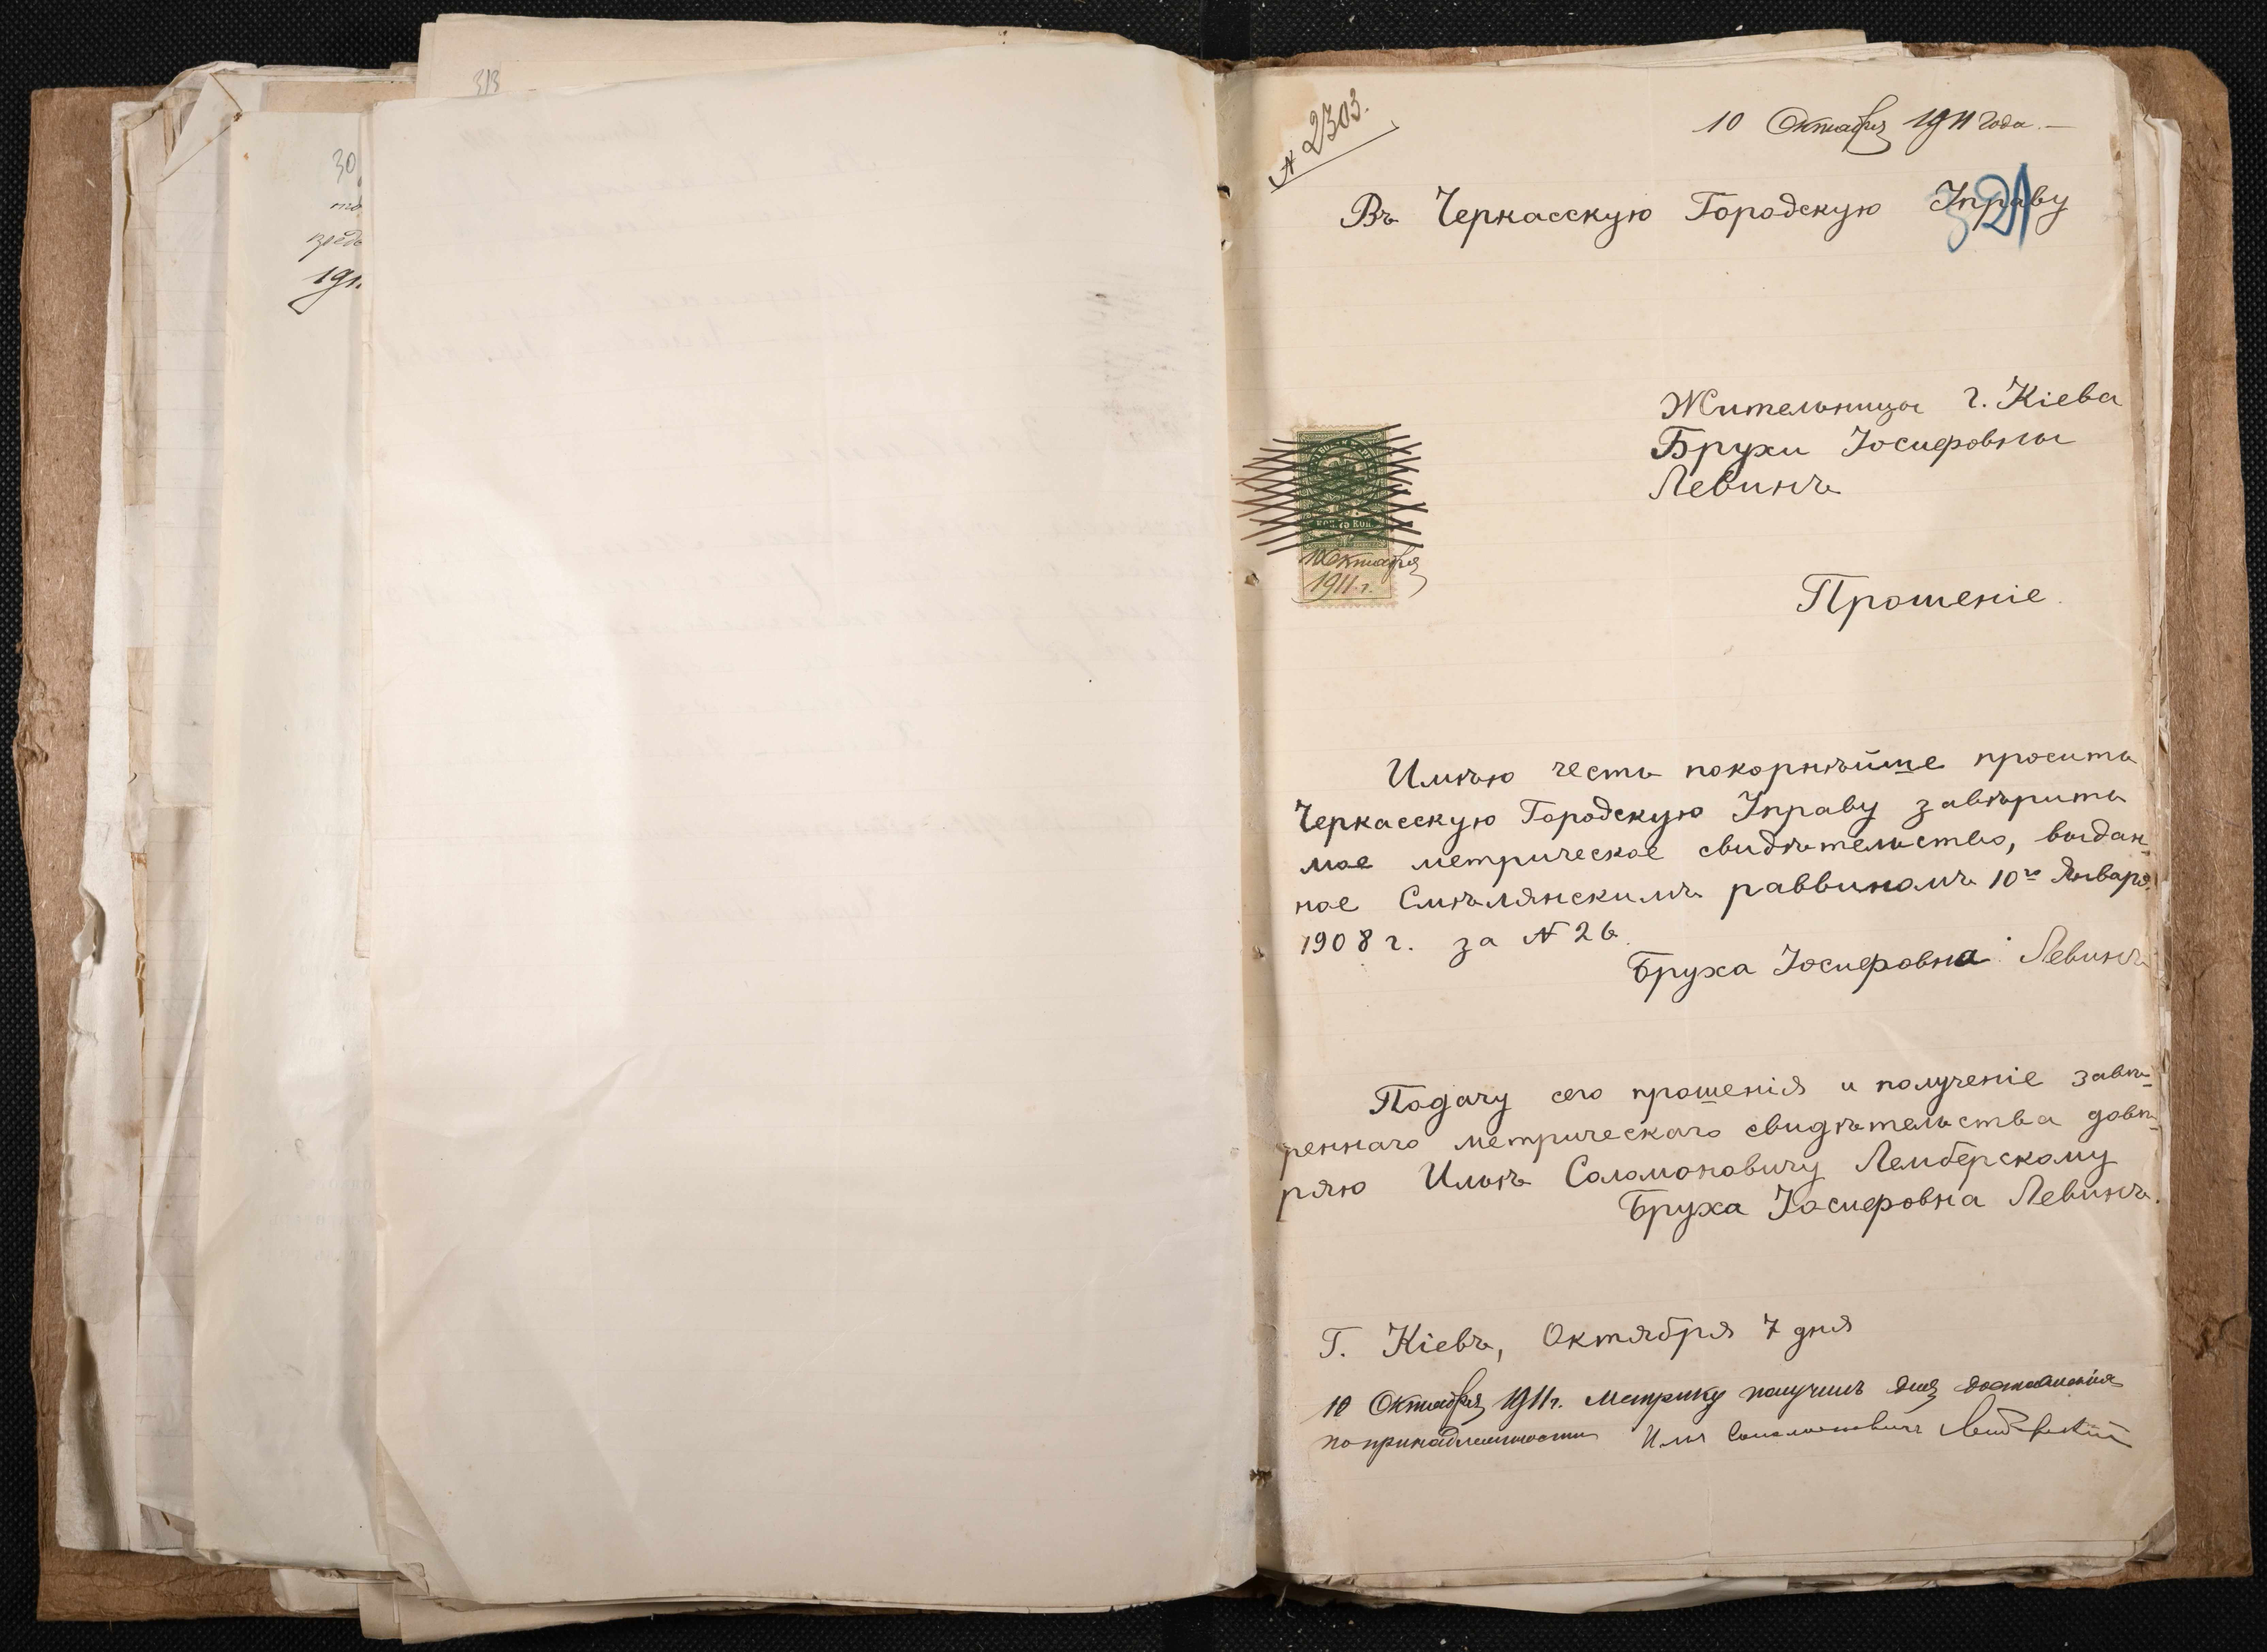 313
30
191
№ 2303.
10 Октября 1911 года.—
321
Въ Черкасскую Городскую Управу
Жительницы г. Кіева
Брухи Іосифовны
Левинъ
75 КОП.
10 Октября
1911 г.
Прошеніе.
Имѣю честь покорнѣйше просить
Черкасскую Городскую Управу завѣрить
мое метрическое свидѣтельство, выдан-
ное Смѣлянскимъ раввиномъ 10го Января
1908 г. за № 26.
Бруха Іосифовна Левинъ
Подачу сего прошенія и полученіе завѣ-
реннаго метрическаго свидѣтельства довѣ-
ряю Ильѣ Соломоновичу Лемберскому
Бруха Іосифовна Левинъ.
Г. Кіевъ, Октября 7 дня
10 Октября 1911 г. Метрику получилъ для доставленія
по принадлежности Илья Соломоновичъ Лемберскій